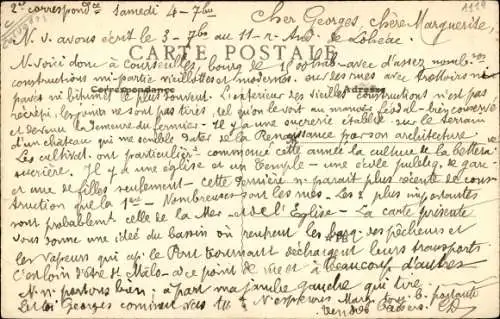 2e correspondce Samedi 4 - 7bre Cher Georges, chère Marguerite,
N. v. avons écrit le 3 - 7bre au 11 - r - And. de Lohéac.
CARTE POSTALE
N. voici donc à Courseulles, bourg de habts - avec d'assez nombses
constructions mi-partie vieillottes et modernes. ou des rues avec trottoirs ni
pavés ni bitumés le plus souvent. L'extérieur des vieilles constructions n'est pas
Correspondance Adresse
récrépi, les joints ne sont pas tirés, tel qu'on le voit au manoir féodal - bien conservé
et devenu la demeure du fermier. Il y a une sucrerie établie sur le terrain
d'un château qui me semble dater de la Renaissance par son architecture.
Les cultivat. ont particulièrt commencé cette année la culture de la betterave
sucrière. Il y a une église et un Temple - une école publiq. de gar-
et une de filles seulement - cette dernière n. paraît plus récente de cons-
truction que la 1ère - Nombreuses sont les rues. Les 2 plus importantes
sont probablemt celle de la Mer et de l'Eglise - La carte présente
vous donne une idée du bassin où rentrent les barq. des pêcheurs et
les vapeurs qui ap. le Pont tournant déchargent leurs transports
c'est loin d'être St Malo - à ce point de vue et à beaucoup d'autres
N. n. portons bien, à part ma jambe gauche qui tire.
Georges N. espérons Marg. touj. b. portante
baisers